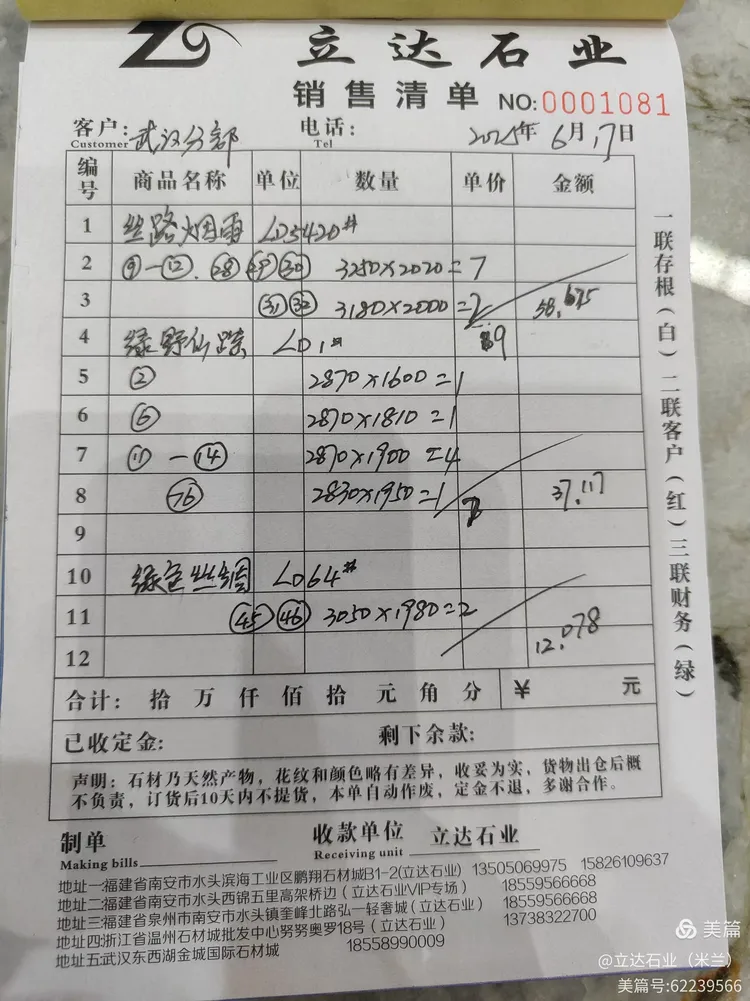 立达石业
销售清单 NO:0001081
客户: 武汉分部 电话: 2025年6月17日
Customer Tel
编号 商品名称 单位 数量 单价 金额
1 丝路烟雨 LD5420#
2 ⑨一⑫. ㉘ ㉙ ㉚ 3250×2020=7
3 ㉛ ㉜ 3180×2000=2 58.675
4 绿野仙踪 LD1# 9
5 ② 2870×1600=1
6 ⑥ 2870×1810=1
7 ⑪一⑭ 2870×1900=4
8 2830×1950=1 37.117
9
10 绿色丝绸 LD64#
11 ㊺ ㊻ 3050×1980=2
12 12.078
合计: 拾 万 仟 佰 拾 元 角 分 ¥ 元
已收定金: 剩下余款:
声明: 石材乃天然产物, 花纹和颜色略有差异, 收妥为实, 货物出仓后概
不负责, 订货后10天内不提货, 本单自动作废, 定金不退, 多谢合作。
一联存根(白) 二联客户(红) 三联财务(绿)
制单 收款单位 立达石业
Making bills Receiving unit
地址一:福建省南安市水头滨海工业区鹏翔石材城B1-2(立达石业) 13505069975 15826109637
地址二:福建省南安市水头西锦五里高架桥边(立达石业VIP专场) 18559566668
地址三:福建省泉州市南安市水头镇奎峰北路弘一轻奢城(立达石业) 18559566668
地址四:浙江省温州石材城批发中心努努奥罗18号(立达石业) 13738322700
地址五:武汉东西湖金城国际石材城 18558990009
美篇
@立达石业(米兰)
美篇号:62239566